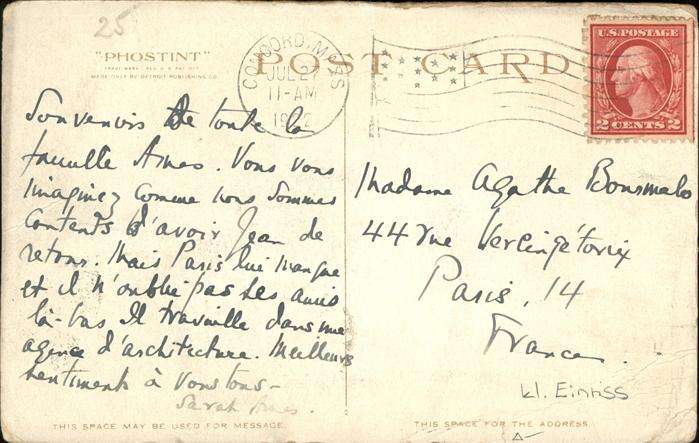 25
"PHOSTINT"
TRADE MARK REG. U.S. PAT. OFF.
MADE ONLY BY DETROIT PUBLISHING CO.
POST CARD
CONCORD, MASS
JUL 27
11-AM
U.S. POSTAGE
2 CENTS 2
Souvenirs de toute la
famille Ames. Vous vous
imaginez comme nous sommes
contents d'avoir Jean de
retour. Mais Paris lui manque
et il n'oublie pas ses amis
là-bas Il travaille dans une
agence d'architecture. Meilleurs
sentiments à vous tous –
Sarah Ames.
Madame Agathe Bonsmalo
44 rue Vercingétorix
Paris. 14
France.
THIS SPACE MAY BE USED FOR MESSAGE.
THIS SPACE FOR THE ADDRESS.